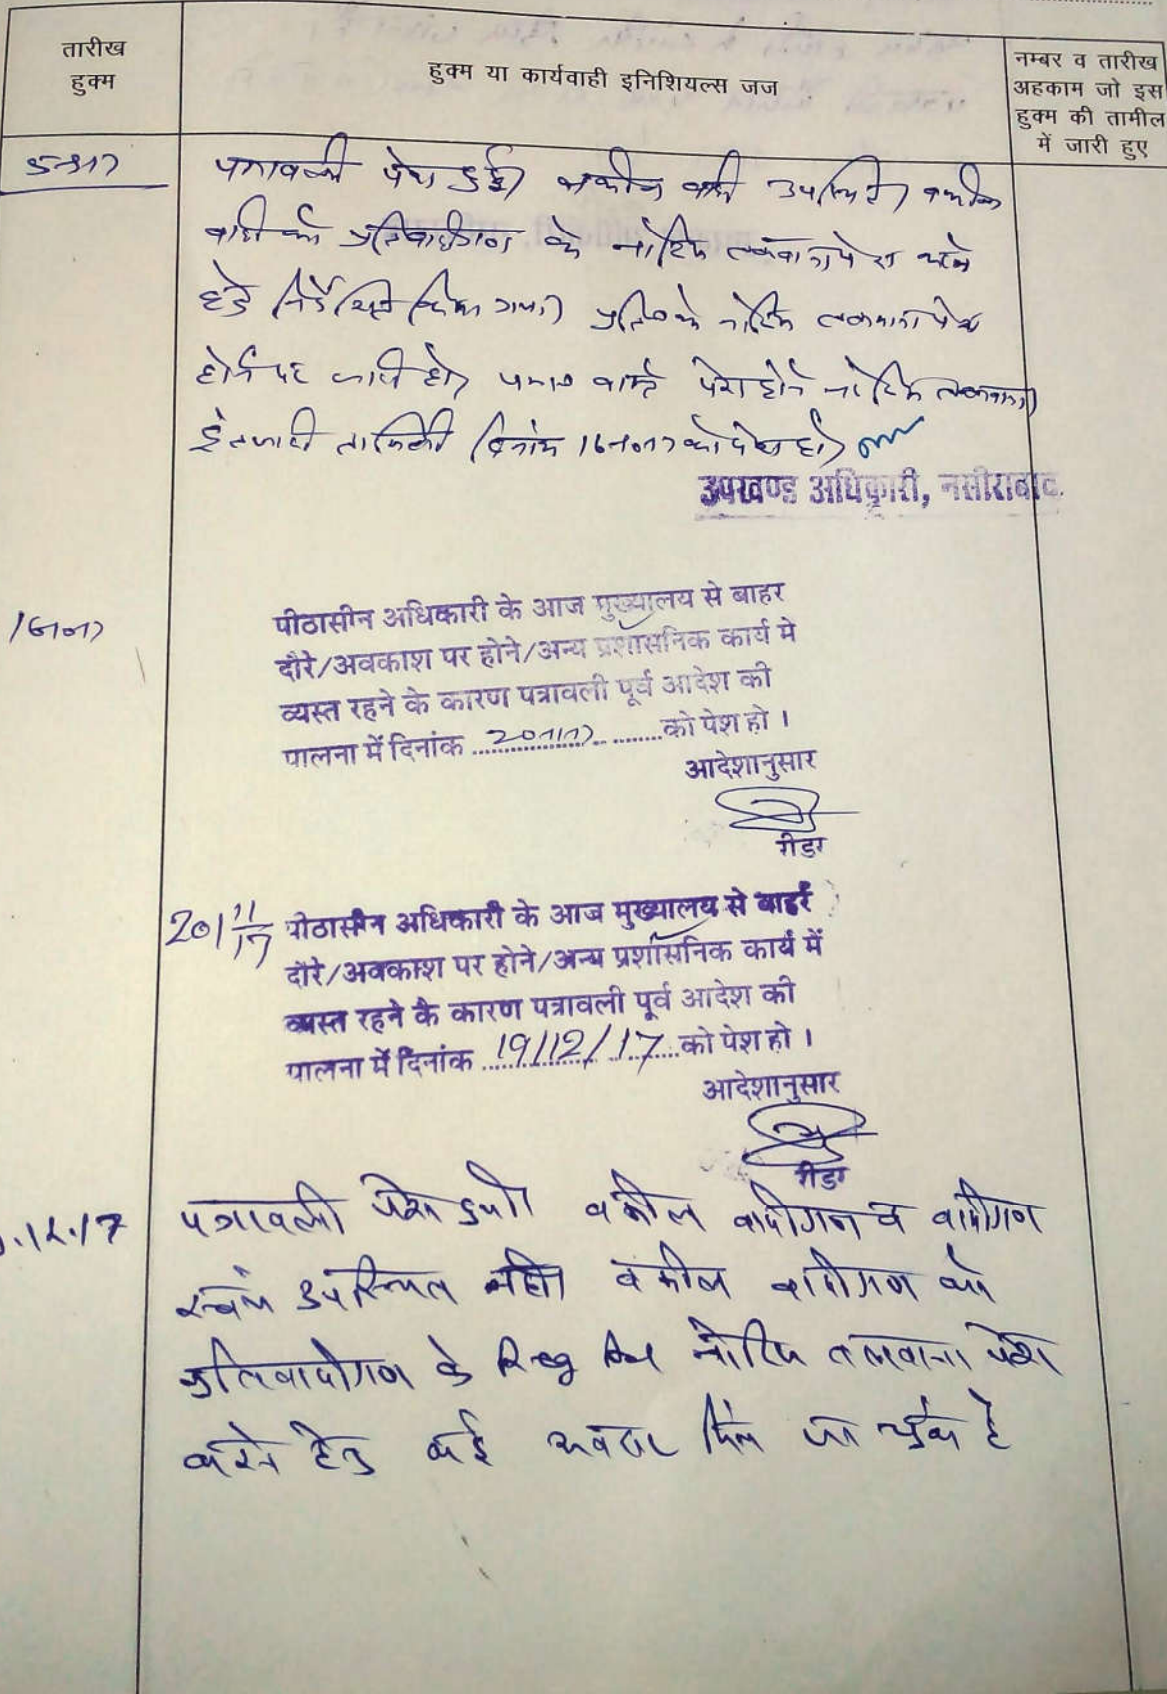 तारीख
हुक्म
हुक्म या कार्यवाही इनिशियल्स जज
नम्बर व तारीख
अहकाम जो इस
हुक्म की तामील
में जारी हुए
पत्रावली पेश हुई। वकील वादी उपस्थित। वकील
वादी को प्रतिवादीगण के नोटिस तलवाना पेश करने
हेतु निर्देशित किया गया। प्रति० के नोटिस तलवाना पेश
होने पर जारी हो। पत्रा० वास्ते पेश होने नोटिस तलवाना
इंतजारी तामिली दिनांक को पेश हो।
उपखण्ड अधिकारी, नसीराबाद
पीठासीन अधिकारी के आज मुख्यालय से बाहर
दौरे/अवकाश पर होने/अन्य प्रशासनिक कार्य मे
व्यस्त रहने के कारण पत्रावली पूर्व आदेश की
पालना में दिनांक को पेश हो ।
आदेशानुसार
रीडर
20/11/17
पीठासीन अधिकारी के आज मुख्यालय से बाहर
दौरे/अवकाश पर होने/अन्य प्रशासनिक कार्य में
व्यस्त रहने के कारण पत्रावली पूर्व आदेश की
पालना में दिनांक 19/12/17 को पेश हो ।
आदेशानुसार
रीडर
.12.17
पत्रावली पेश हुयी। वकील वादीगण व वादीगण
स्वयं उपस्थित नही। वकील वादीगण को
प्रतिवादीगण के नोटिस तलवाना पेश
करने हेतु कई अवसर दिये जा चुके है